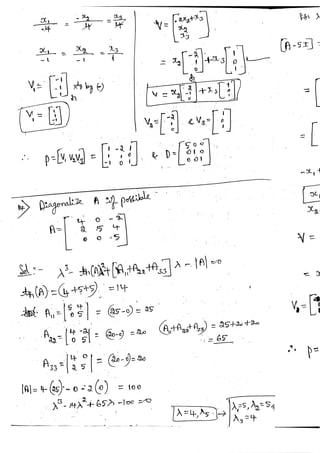 x₁/-4 = -x₂/4 = x₃/4
x₁/-1 = x₂/-1 = x₃/1
V₁ = [-1 -1 1] x by (-)
V₁ = [1 1 -1]
V = [-2x₂+x₃ x₂ x₃]
= x₂[-2 1 0] + x₃[1 0 1]
or
V = x₂[-2 1 0] + x₃[1 0 1]
V₂ = [-2 1 0] & V₃ = [1 0 1]
∴ P = [V₁ V₂ V₃] = [1 -2 1; 1 1 0; -1 0 1] & D = [5 0 0; 0 1 0; 0 0 1]
Diagonalize A if possible
A = [4 0 -2; 2 5 4; 0 0 5]
Sol :- λ³ - tr(A)λ² + [A₁₁+A₂₂+A₃₃] λ - |A| = 0
tr(A) = (4+5+5) = 14
A₁₁ = |5 4; 0 5| = (25-0) = 25
A₂₂ = |4 -2; 0 5| = (20-0) = 20
(A₁₁+A₂₂+A₃₃) = 25+20+20
= 65
A₃₃ = |4 0; 2 5| = (20-0) = 20
|A| = 4(25) - 0 - 2(0) = 100
λ³ - 14λ² + 65λ - 100 = 0
λ = 4, λ5 → λ₁=5, λ₂=5,
λ₃=4
[A-5I] =
=
-x₁ +
x₁
x₂
V =
=
V₁ =
∴ P =